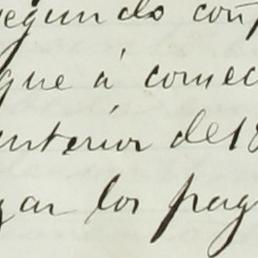 segundo conf
que á comec
anterior del 18
gar los pag